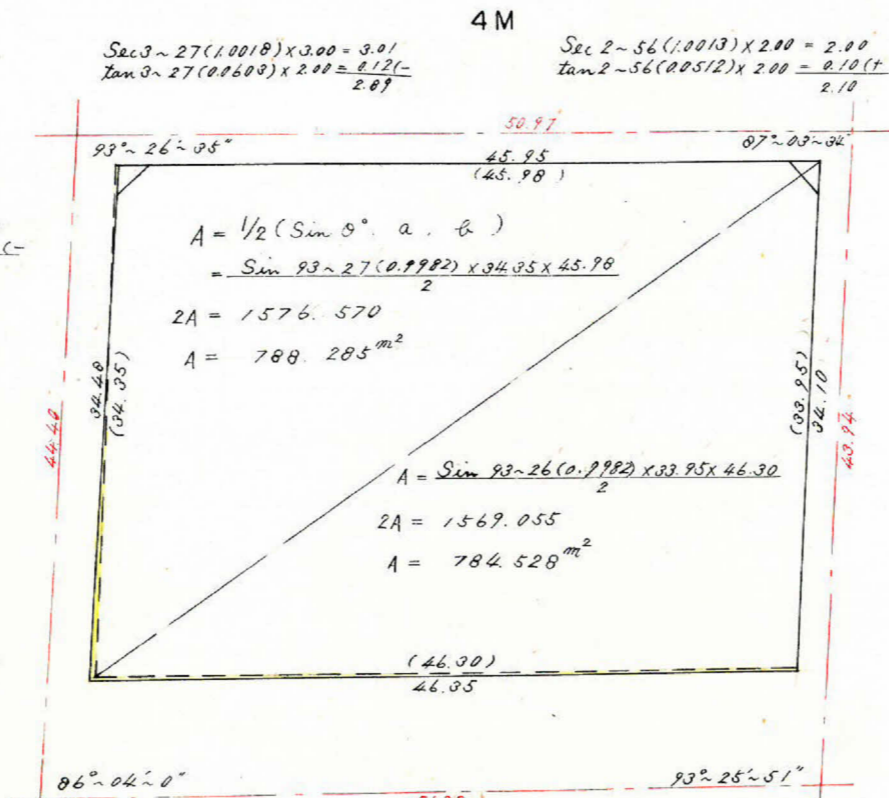 4M
Sec 3~27(1.0018)×3.00 = 3.01
tan 3~27(0.0603)×2.00 = 0.12(-
2.89
Sec 2~56(1.0013)×2.00 = 2.00
tan 2~56(0.0512)×2.00 = 0.10(+
2.10
50.97
93°~26'~35"
87°~03~34
45.95
(45.98)
A = 1/2 (Sin θ°. a . b )
= Sin 93~27(0.9982)×34.35×45.98
2
2A = 1576.570
A = 788.285 m²
44.40
34.48
(34.35)
(33.95)
34.10
43.94
A = Sin 93~26(0.9982)×33.95×46.30
2
2A = 1569.055
A = 784.528 m²
(46.30)
46.35
86°~04'~0"
93°~25'~51"